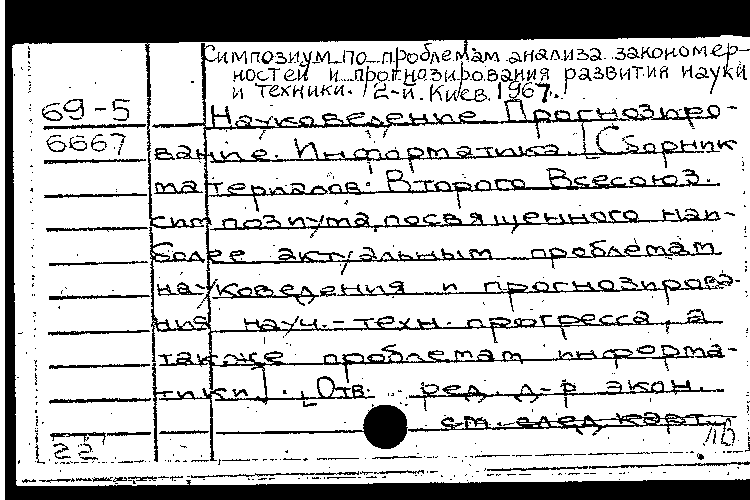 Симпозиум по проблемам анализа закономер-
ностей и прогнозирования развития науки
и техники. 2-й. Киев. 1967.
69-5
Науковедение. Прогнозиро-
6667
вание. Информатика. [Сборник
материалов Второго Всесоюз.
симпозиума, посвященного наи-
более актуальным проблемам
науковедения и прогнозирова-
ния науч.-техн. прогресса, а
также проблемам информа-
тики]. [Отв. ред. д-р экон.
см. след. карт.
22